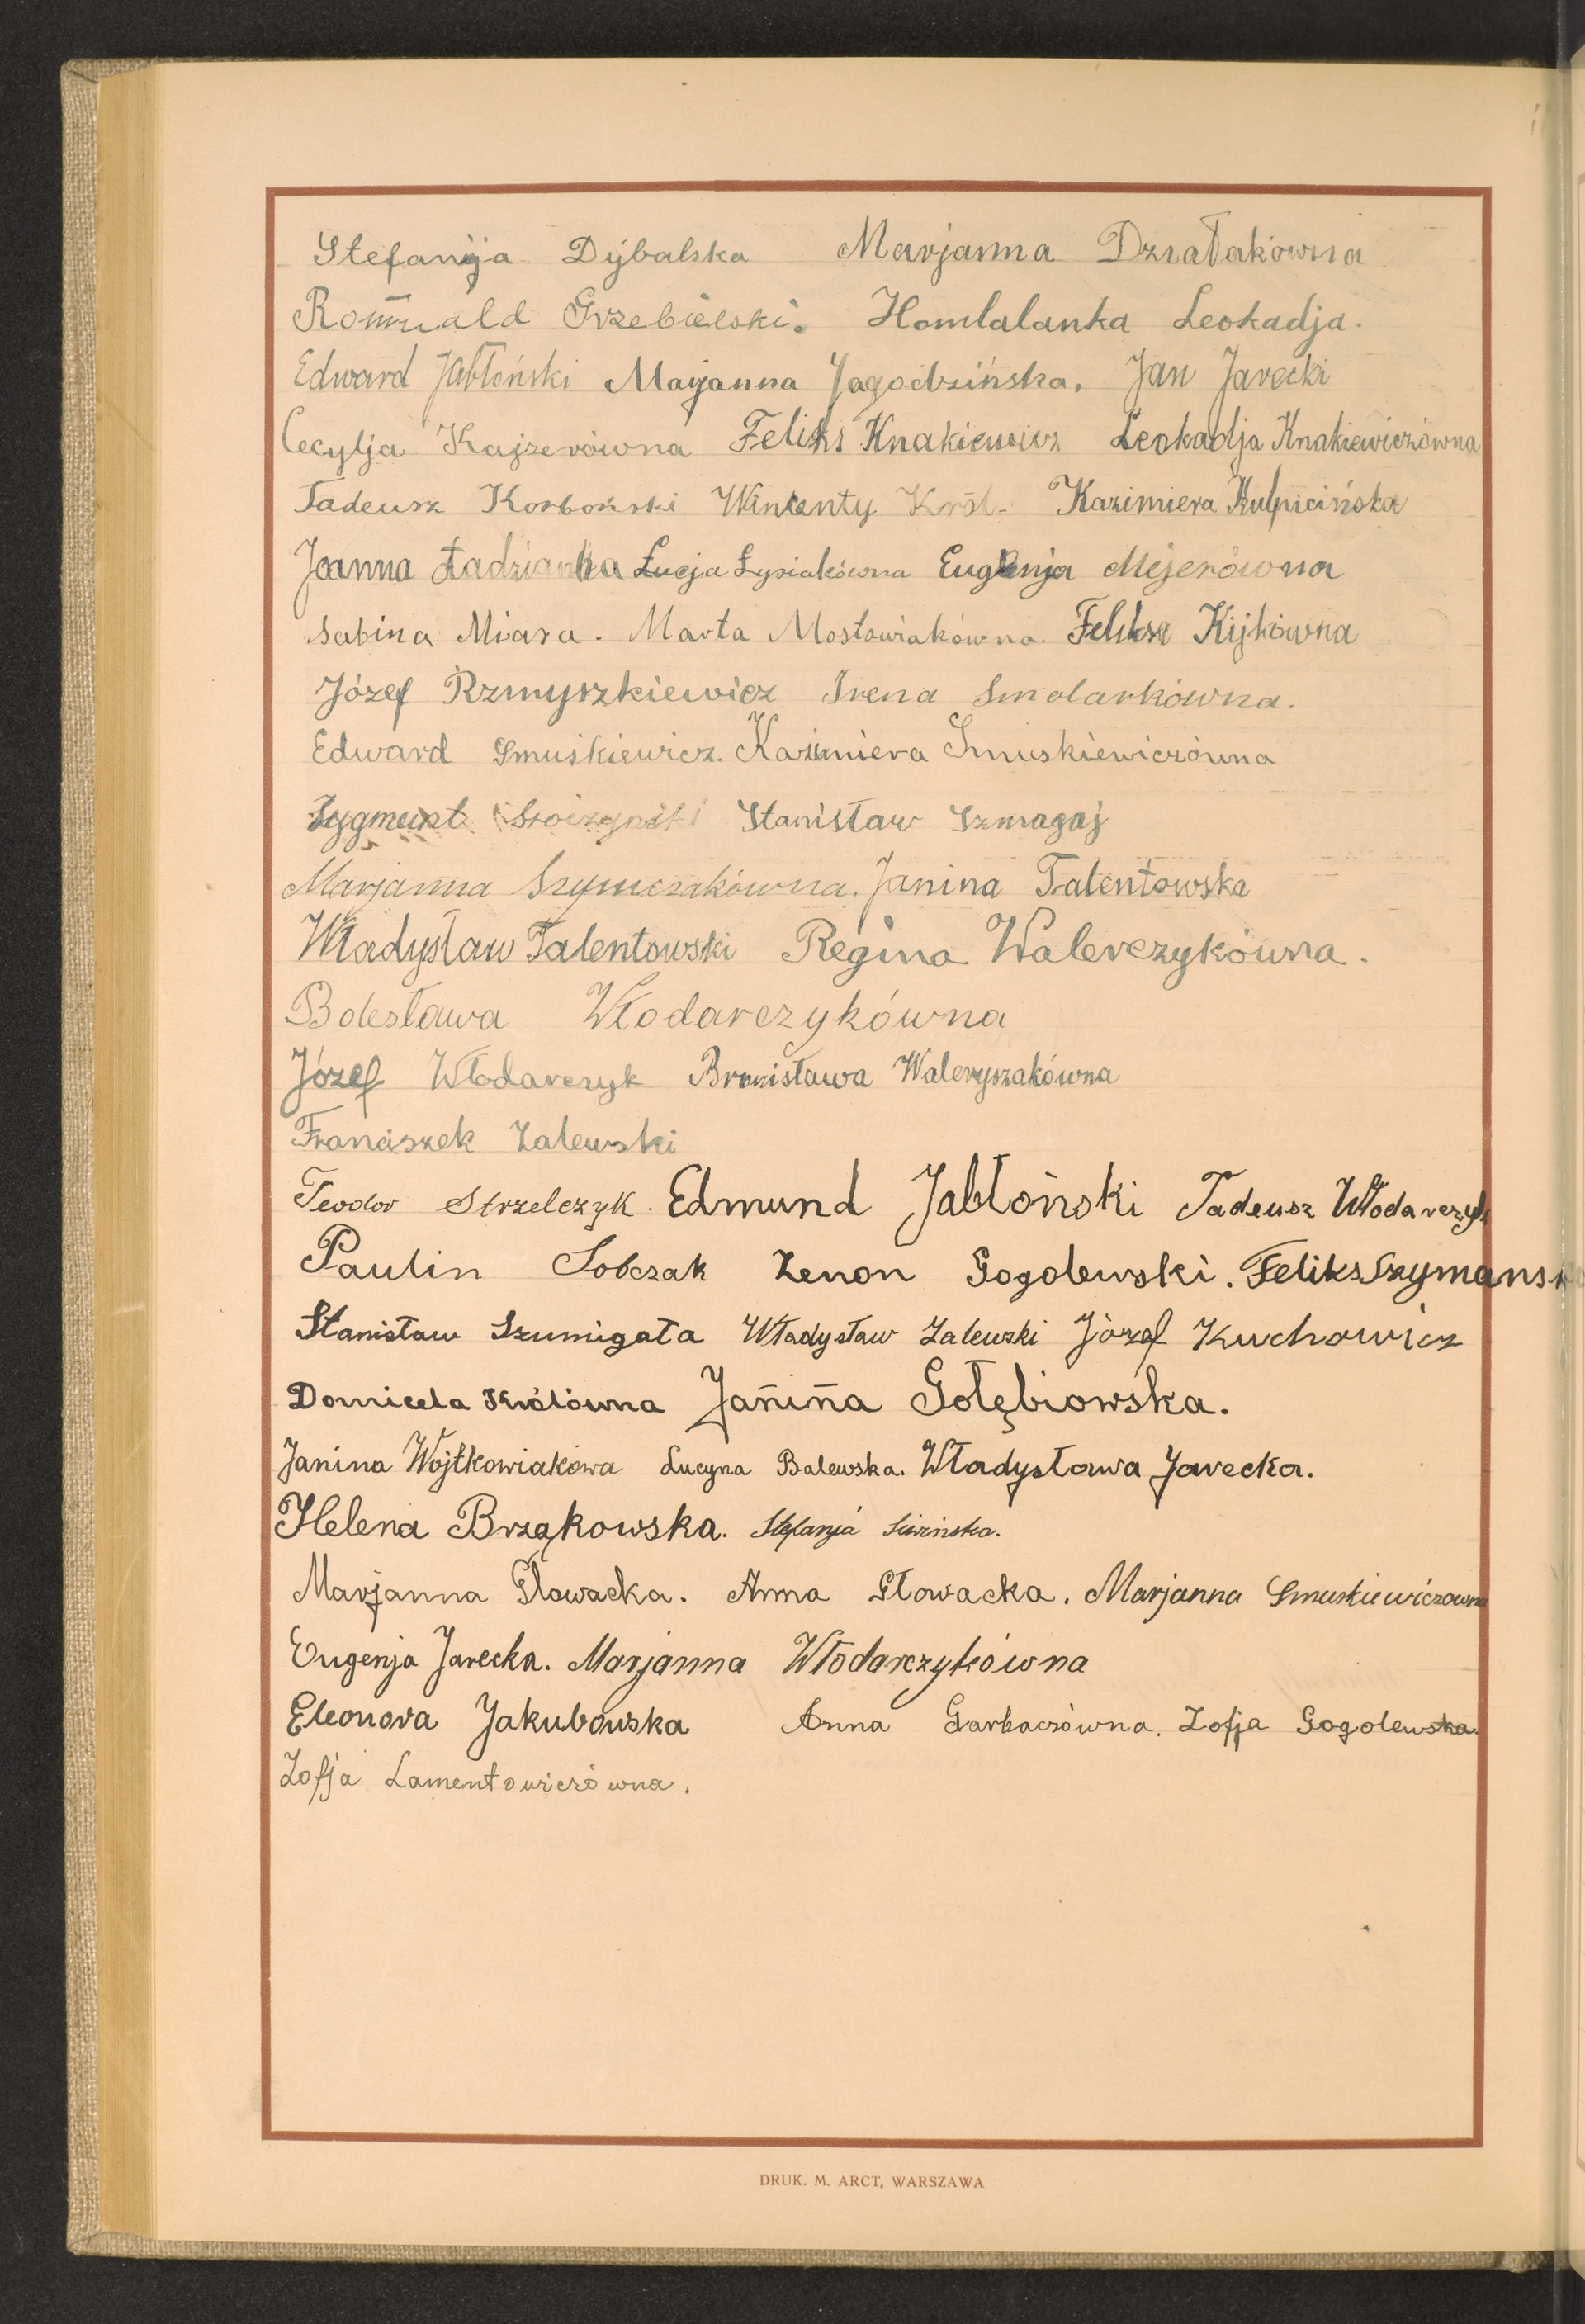 Stefanija Dybalska Marjanna Działakówna
Romuald Grzebielski. Homlalanka Leokadja.
Edward Jabłoński Marjanna Jagodzińska. Jan Jarecki
Cecylja Kajzerówna Feliks Knakiewicz Leokadja Knakiewiczówna
Tadeusz Korboński Wincenty Król. Kazimiera Kulpicińska
Joanna Ładzianka Łucja Łysiakówna Eugenja Mejerówna
Sabina Miara. Marta Mostowiakówna. Feliksa Kijkówna
Józef Rzmyszkiewicz Irena Smolarkówna.
Edward Smuśkiewicz. Kazimiera Smuskiewiczówna
Zygmunt Stanisław Szmagaj
Marjanna Szymczakówna. Janina Talentowska
Władysław Talentowski Regina Walerczykówna.
Bolesława Włodarczykówna
Józef Włodarczyk Bronisława Waleryszakówna
Franciszek Zalewski
Teodor Strzelczyk. Edmund Jabłoński Tadeusz Włodarczyk
Paulin Sobczak Zenon Gogolewski. Feliks Szymański
Stanisław Szumigała Władysław Zalewski Józef Kuchowicz
Domicela Królówna Janina Gołębiowska.
Janina Wojtkowiakowa Lucyna Balewska. Władysława Jarecka.
Helena Brząkowska. Stefanja Siwińska.
Marjanna Głowacka. Anna Głowacka. Marjanna Smuskiewiczówna
Eugenja Jarecka. Marjanna Włodarczykówna
Eleonora Jakubowska Anna Garbaczówna. Zofja Gogolewska.
Zofja Lamentowiczówna.
DRUK. M. ARCT, WARSZAWA